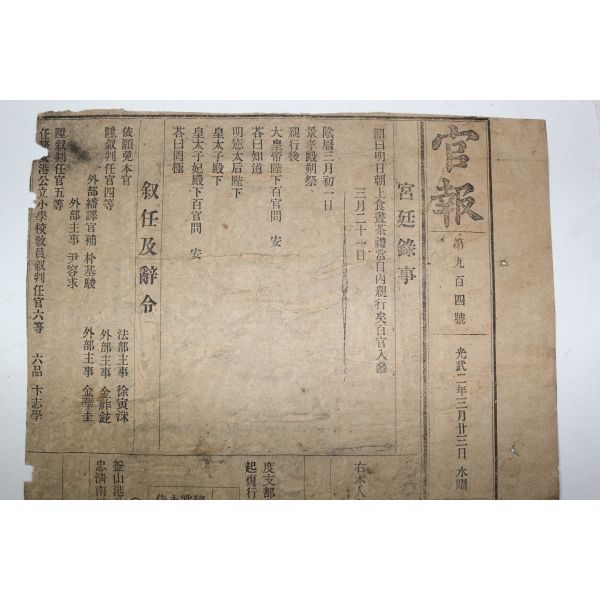 官報
第九百四號
光武二年三月廿三日 水曜
宮廷錄事
詔曰明日朝上食晝茶禮當自內親行矣百官入參
三月二十一日
陰曆三月初一日
景孝殿朔祭
親行後
大皇帝陛下百官問 安
荅曰知道
明憲太后陛下
皇太子殿下
皇太子妃殿下百官問 安
荅曰罔極
叙任及辭令
依願免本官 法部主事 徐寅洙
陞叙判任官四等 外部主事 金祚鉉
外部繙譯官補 朴基駿 外部主事 金華圭
外部主事 尹容求
陞叙判任官五等
港公立小學校敎員叙判任官六等 六品 卞志學
右木人
度支部
起復行
釜山港
忠淸南